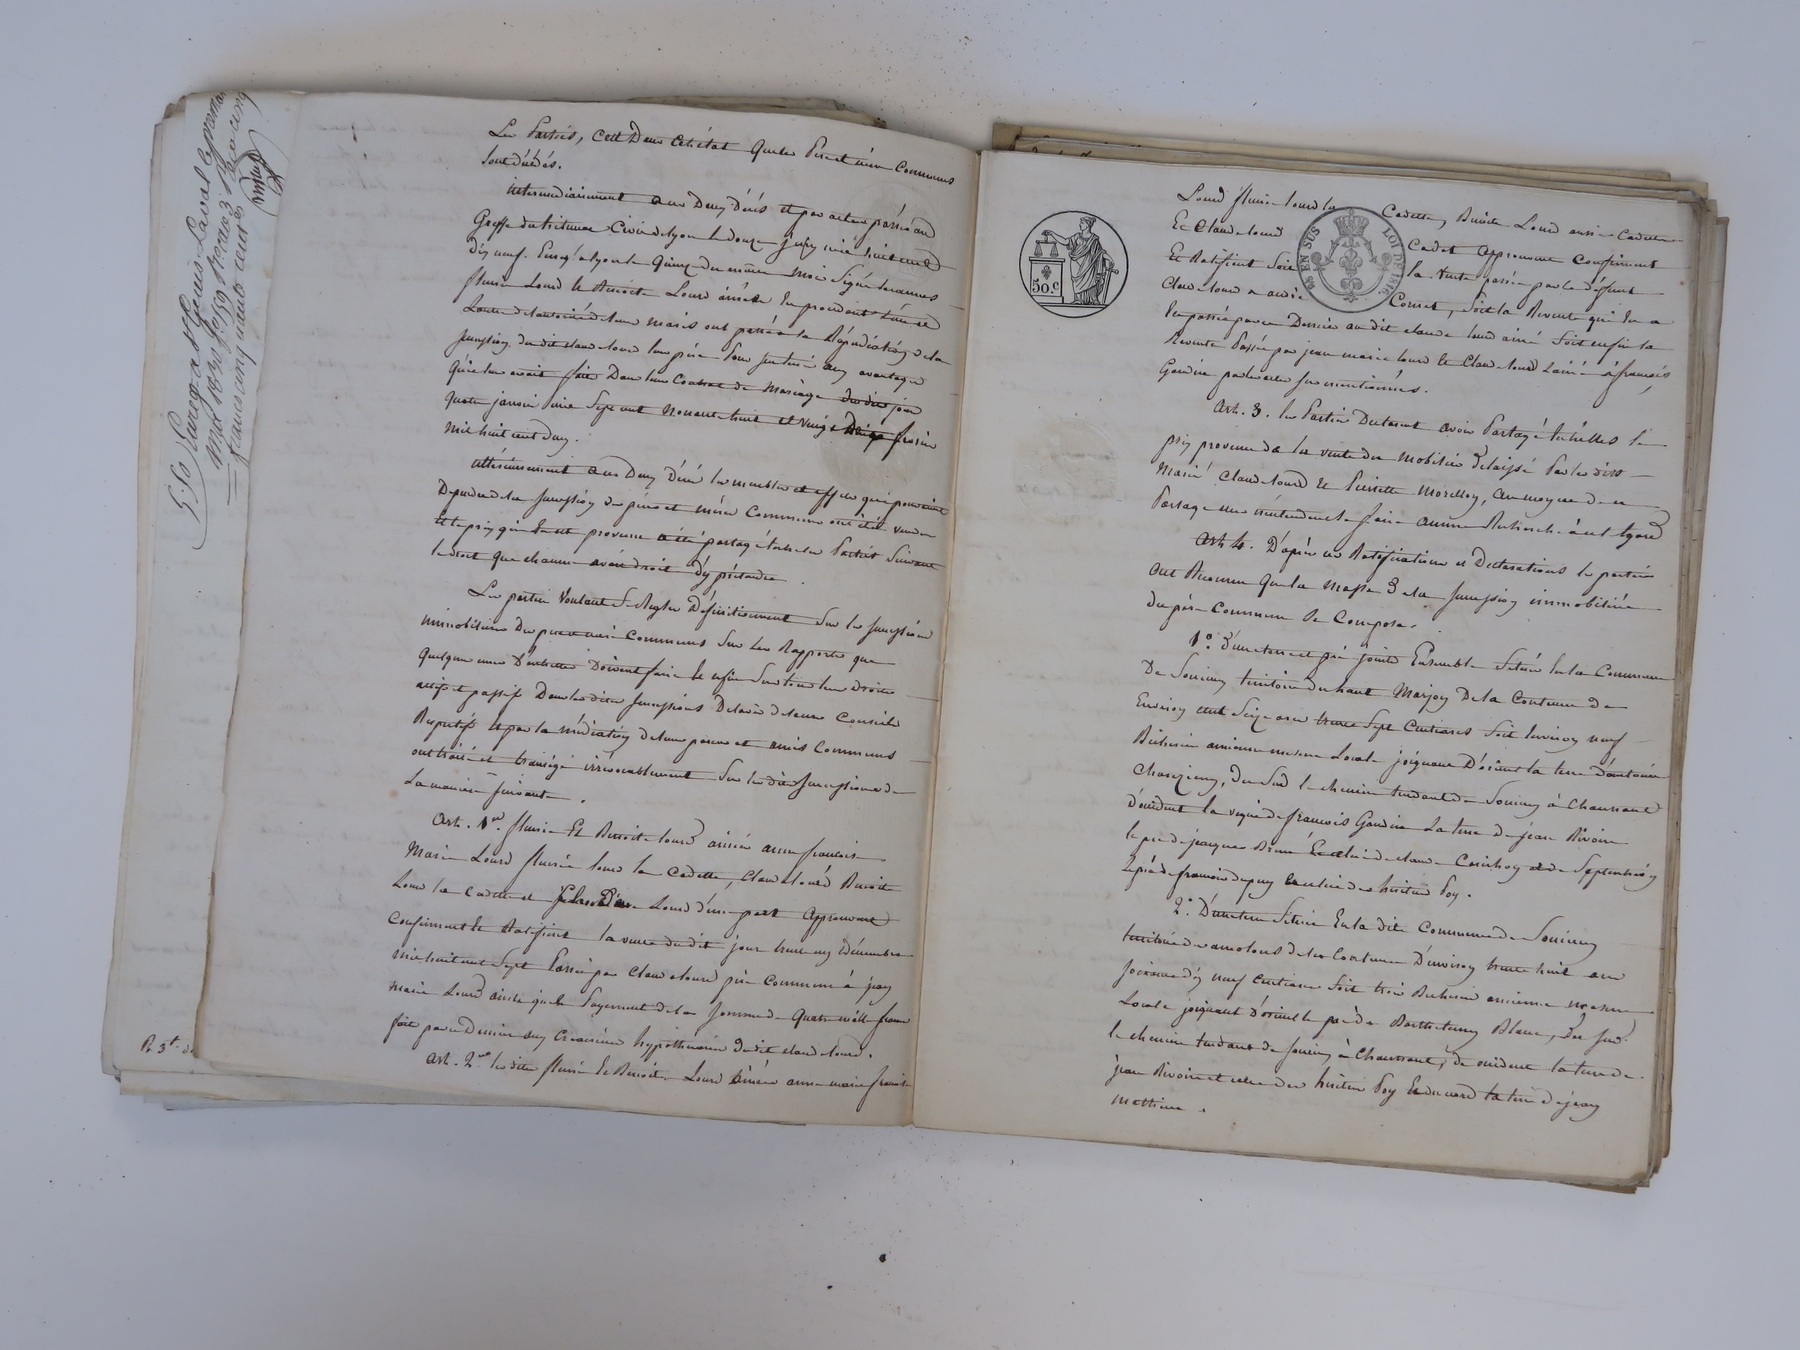 Les Parties, c'est Dans cet état que les Père et mère communs
sont décédés.
intermédiairement aux deux décès et par acte passé au
Greffe du tribunal Civil de lyon le douze juin mil huit cent
dix neuf. Enreg. à lyon le quinze du même mois Signé
fleurie Lourd et Benoite Lourd ainées En procédant
de l'autorité de leurs maris ont passé la Répudiation de la
succession dudit claude lourd leur père pour s'en tenir aux avantages
qu'il leur avait fait Dans leur Contrat de Mariage des dix jour
quatre janvier mil sept cent nonante huit et vingt frévrier
mil huit cent dix.
ultérieurement aux Deux Décès les meubles et effets qui pouvaient
Dépendre de la succession des père et mère Communs ont été vendus
et le prix qui en est provenu a été partagé entre les Parties suivant
le droit que chacune avait droit d'y prétendre.
Les parties voulant se Régler Définitivement sur les successions
immobilières Des père et mère Communs sur les Rapports que
quelques unes D'entr'elles Doivent faire et enfin sur tous leurs Droits
actifs et passifs Dans lesdites successions De l'avis de leurs Conseils
Respectifs et par la médiation de leurs parens et amis Communs
ont traité et transigé irrévocablement sur lesdites successions de
La manière suivante.
Art. 1er. fleurie Et Benoite lourd ainées anne françoise
Marie Lourd fleurie lourd la Cadette, Claude lourd Benoite
Lourd la Cadette et Lourd d'une part Approuvent
Confirment Et Ratifient la vente dudit jour trente un Décembre
mil huit cent Sept Passée par Claude lourd père commun à jean
Marie Lourd ainsi que le Payement de la Somme de quatre mille francs
fait par ce Dernier aux Créanciers hypothécaires dudit claude lourd.
Art. 2me. lesdites fleurie Et Benoite Lourd ainées anne marie françoise
Lourd fleurie lourd la Cadette, Benoite Lourd aussi Cadette
Et Claude lourd Cadet Approuvent Confirment
Et Ratifient Soit la vente passée par le défunt
Claude lourd à andré Comet, Soit la Revente qui En a
été passée par ce Dernier audit claude lourd ainé Soit enfin la
Revente Passée par jean marie lourd Et Claude lourd L'ainé à françois
Gaudin par les actes sus mentionnés.
Art. 3. les Parties Déclarent avoir Partagé entr'elles le
prix provenu de la vente du Mobilier Délaissé Par les dits
Mariés Claude lourd Et Pierrette Morellon, au moyen de ce
Partage elles n'entendent se faire aucune Recherche à cet égard
Art. 4. D'après ces Ratifications et Déclarations les parties
ont Reconnu que la Masse de la succession immobilière
du père Commun Se Compose.
1.° D'une terre et pré joints Ensemble Situés En la Commune
De Soucieu territoire du haut Marjon De la Contenue de
Environ cent Seize ares trente Sept Centiares Soit Environ neuf
Bicherées ancienne mesure Locale joignant D'orient la terre d'antoine
Chavassieux, du Sud le chemin tendant de Soucieu à Chaussant
D'occident la vigne de françois Gaudin La terre de jean Rivoire
le pré de jacques Brun Et celui de claude Cornillon et de Septentrion
Le pré de françois dupuy Et celui des héritiers Poy.
2.° D'une terre Située En la dite Commune de Soucieu
territoire des de la Contenue D'environ trente huit ares
Soixante dix neuf Centiares Soit trois Bicherées ancienne mesure
Locale joignant D'orient le pré de Barthelemy Blanc, Du Sud
le chemin tendant de Soucieu à Chaussant, de occident la terre de
jean Rivoire et celle des héritiers Poy Et du nord la terre de jean
Mathieu.
50.C
EN SUS
LOI DE 1816.